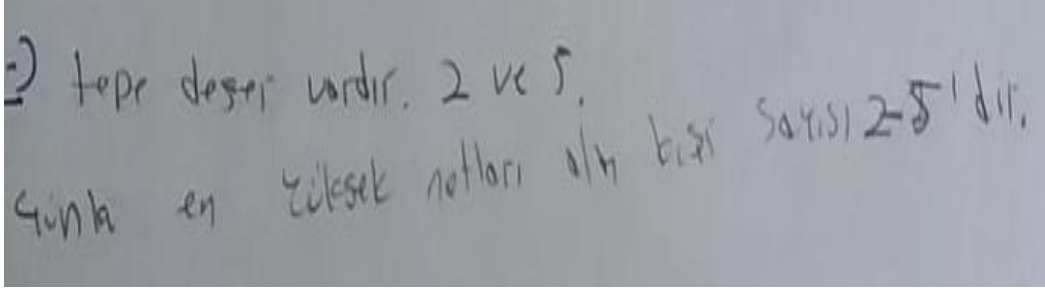 =) tepe değer vardır. 2 ve 5.
Çünkü en yüksek notları alan kişi sayısı 2-5'dir.